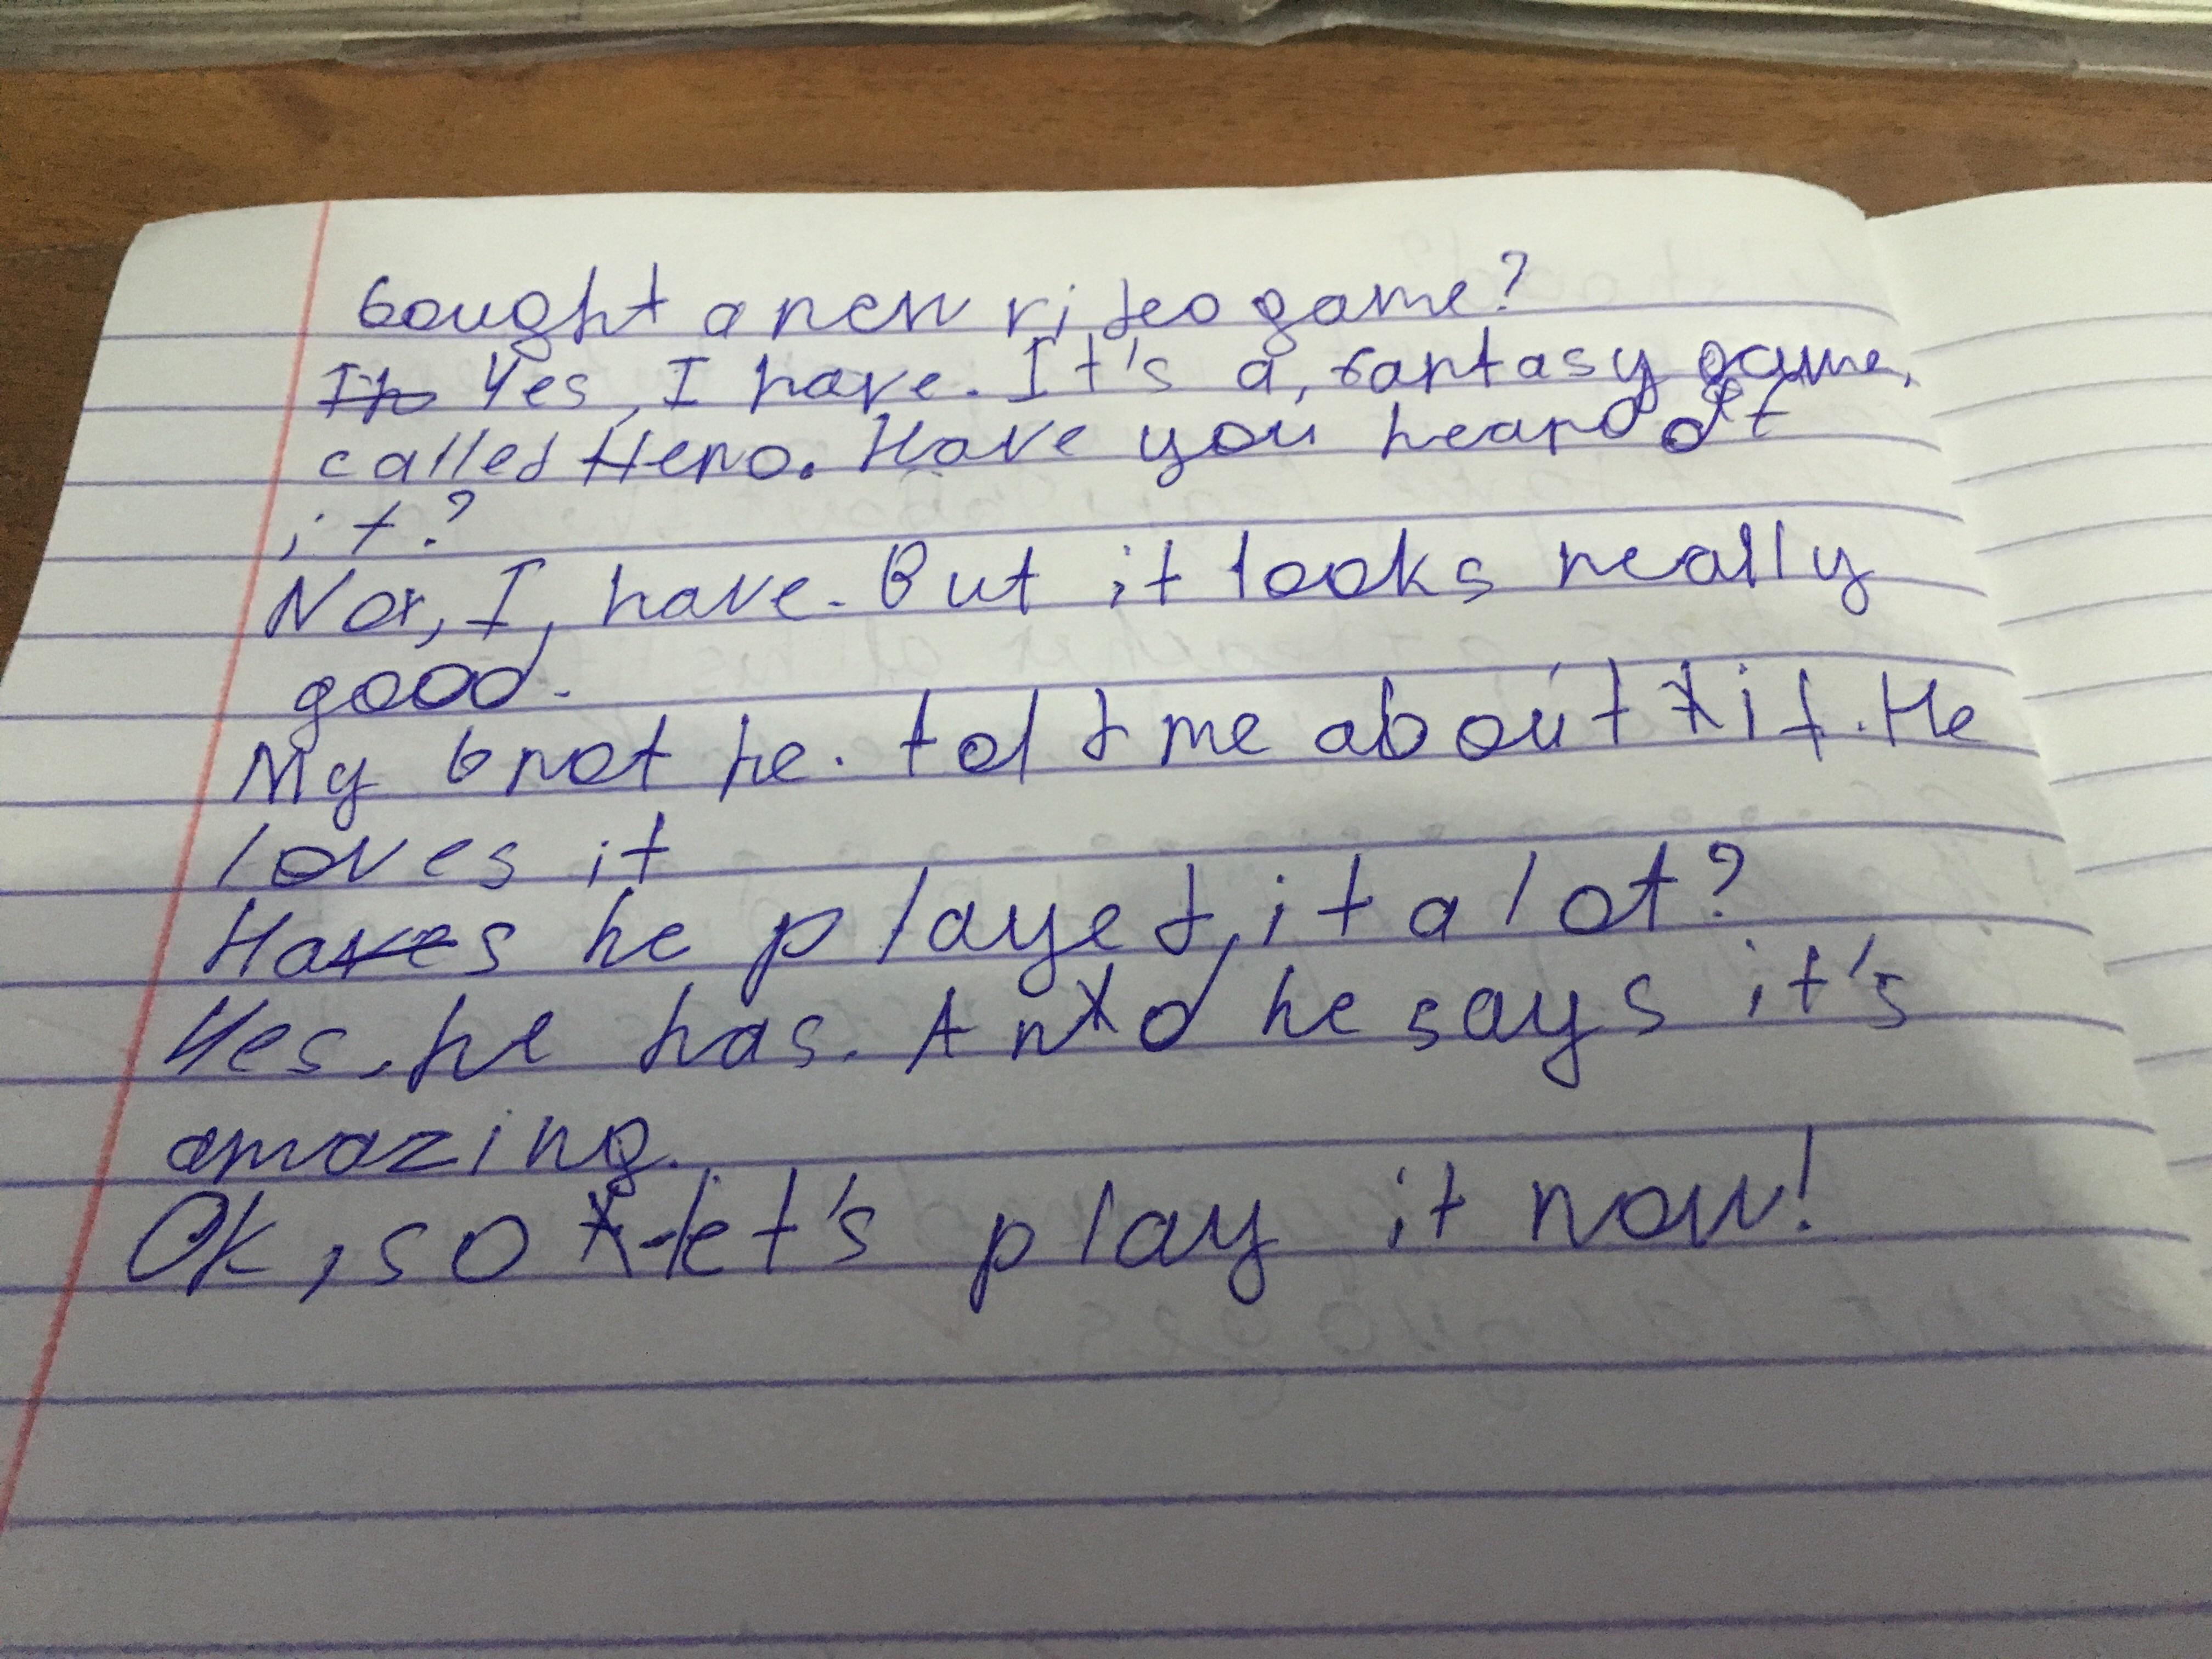 bought a new video game?
Yes, I have. It's a, fantasy game,
called Hero. Have you heard of
it?
No, I, have. But it looks really
good.
My brot he. told me about it. He
loves it
Has he played, it a lot?
Yes, he has. And he says it's
amazing.
Ok, so let's play it now!